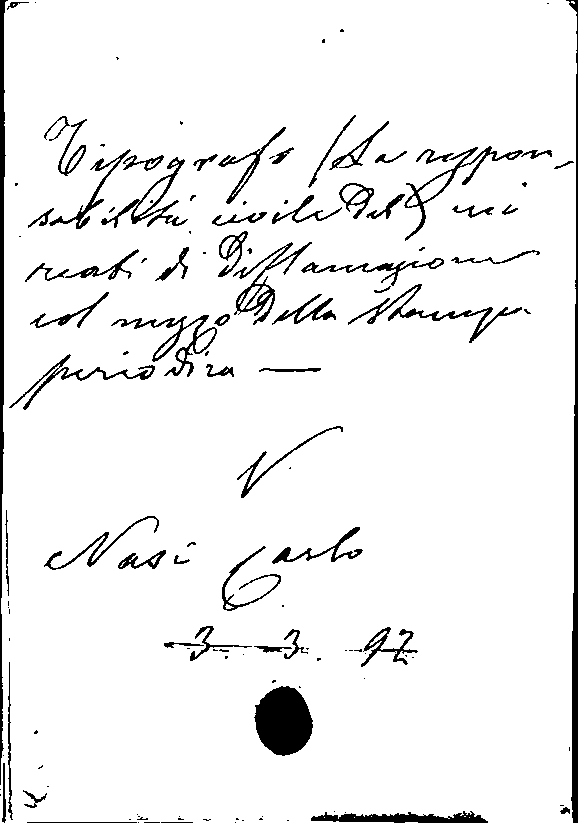 Tipografo (La respon-
sabilità civile del) nei
reati di diffamazione
col mezzo della stampa
periodica —
V.
Nasi Carlo
3. 3. 92